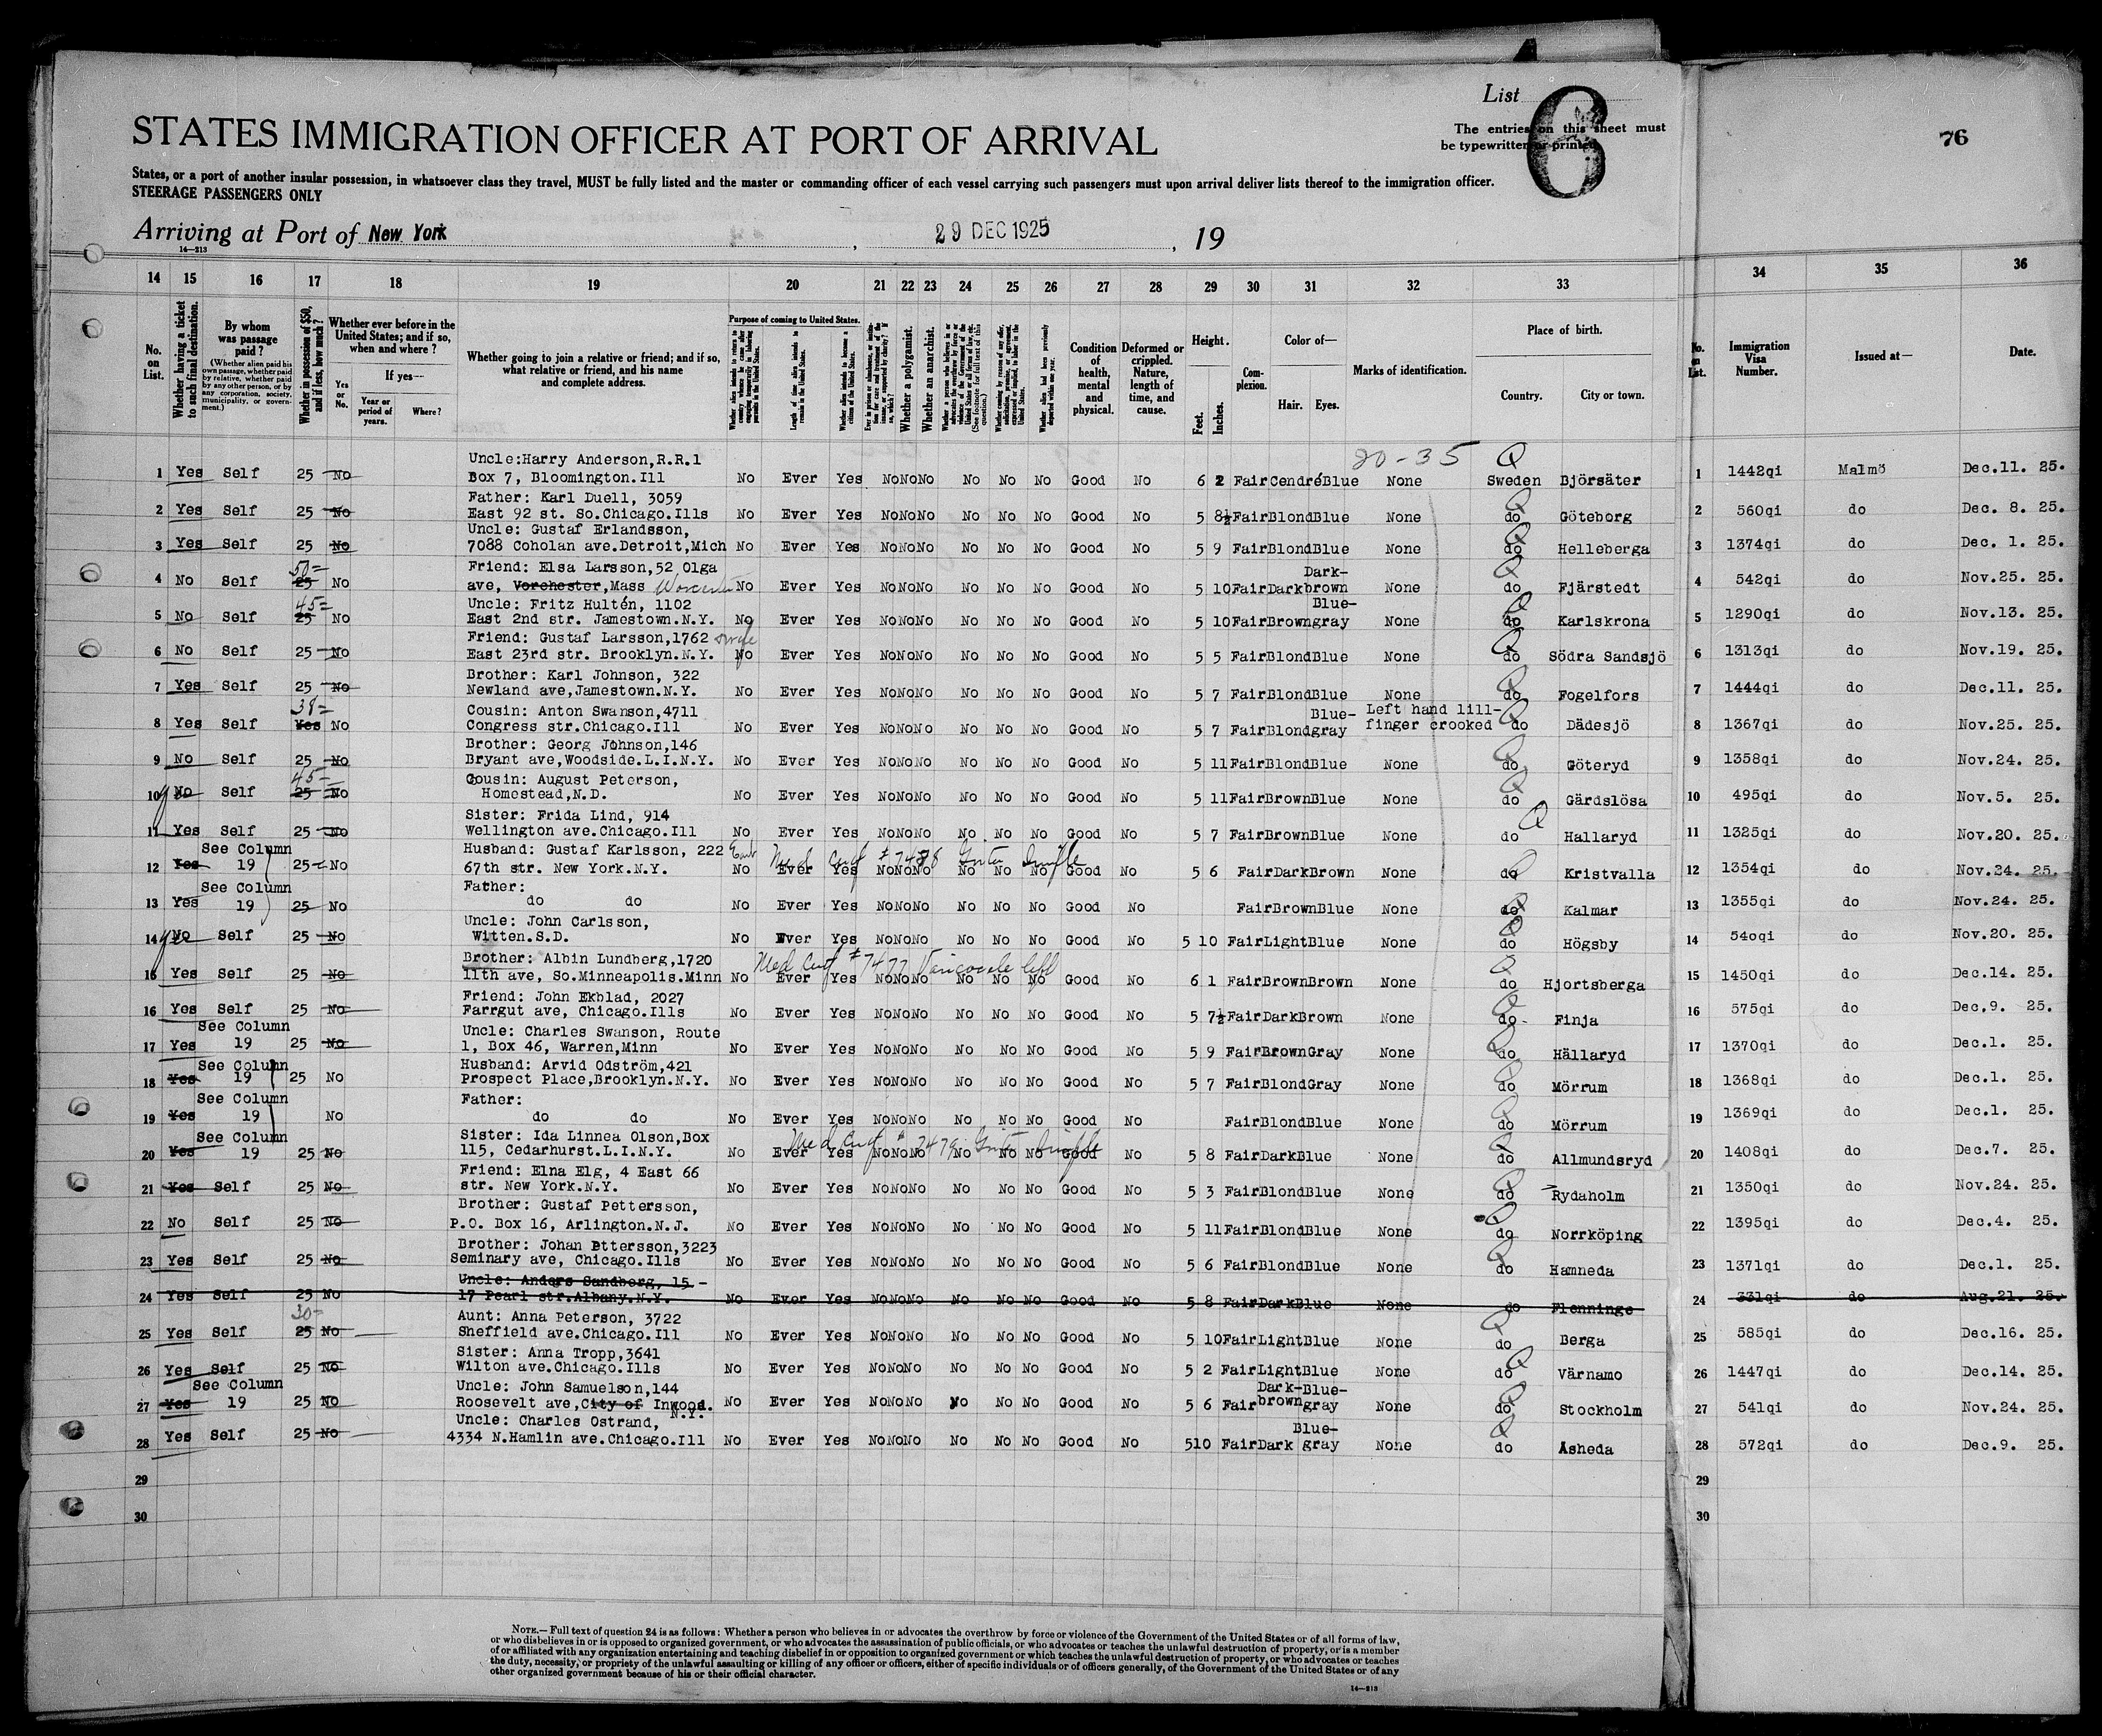 List 6
The entries on this sheet must
be typewritten or printed.
76
STATES IMMIGRATION OFFICER AT PORT OF ARRIVAL
States, or a port of another insular possession, in whatsoever class they travel, MUST be fully listed and the master or commanding officer of each vessel carrying such passengers must upon arrival deliver lists thereof to the immigration officer.
STEERAGE PASSENGERS ONLY
Arriving at Port of New York , 29 DEC 1925 , 19
14—213
14 15 16 17 18 19 20 21 22 23 24 25 26 27 28 29 30 31 32 33 34 35 36
No. on List.
Whether having a ticket to such final destination.
By whom was passage paid?
(Whether alien paid his own passage, whether paid by relative, whether paid by any other person, or by any corporation, society, municipality, or government.)
Whether in possession of $50, and if less, how much?
Whether ever before in the United States; and if so, when and where?
Yes or No.
If yes—
Year or period of years.
Where?
Whether going to join a relative or friend; and if so, what relative or friend, and his name and complete address.
Purpose of coming to United States.
Length of time alien intends to remain in the United States.
Whether alien intends to become a citizen of the United States.
Whether a polygamist.
Whether an anarchist.
Condition of health, mental and physical.
Deformed or crippled. Nature, length of time, and cause.
Height.
Feet. Inches.
Complexion.
Color of—
Hair. Eyes.
Marks of identification.
Place of birth.
Country. City or town.
No. on List.
Immigration Visa Number.
Issued at—
Date.
20-35
Uncle:Harry Anderson,R.R.1
1 Yes Self 25 No Box 7, Bloomington.Ill No Ever Yes No No No No No No Good No 6 2 Fair Cendré Blue None Sweden Björsäter 1 1442qi Malmö Dec.11. 25.
Father: Karl Duell, 3059
2 Yes Self 25 No East 92 st. So.Chicago.Ills No Ever Yes No No No No No No Good No 5 8½ Fair Blond Blue None do Göteborg 2 560qi do Dec. 8. 25.
Uncle: Gustaf Erlandsson,
3 Yes Self 25 No 7088 Coholan ave.Detroit,Mich No Ever Yes No No No No No No Good No 5 9 Fair Blond Blue None do Helleberga 3 1374qi do Dec. 1. 25.
50= Friend: Elsa Larsson,52 Olga Dark-
4 No Self 25 No ave, Vorchester,Mass Worcester No Ever Yes No No No No No No Good No 5 10 Fair Dark brown None do Fjärstedt 4 542qi do Nov.25. 25.
45= Uncle: Fritz Hultén, 1102 Blue-
5 No Self 25 No East 2nd str. Jamestown.N.Y. No Ever Yes No No No No No No Good No 5 10 Fair Brown gray None do Karlskrona 5 1290qi do Nov.13. 25.
Friend: Gustaf Larsson,1762
6 No Self 25 No East 23rd str. Brooklyn.N.Y. No Ever Yes No No No No No No Good No 5 5 Fair Blond Blue None do Södra Sandsjö 6 1313qi do Nov.19. 25.
Brother: Karl Johnson, 322
7 Yes Self 25 No Newland ave,Jamestown.N.Y. No Ever Yes No No No No No No Good No 5 7 Fair Blond Blue None do Fogelfors 7 1444qi do Dec.11. 25.
38= Cousin: Anton Swanson,4711 Blue- Left hand lill-
8 Yes Self Yes No Congress str.Chicago.Ill No Ever Yes No No No No No No Good No 5 7 Fair Blond gray finger crooked do Dädesjö 8 1367qi do Nov.25. 25.
Brother: Georg Johnson,146
9 No Self 25 No Bryant ave,Woodside.L.I.N.Y. No Ever Yes No No No No No No Good No 5 11 Fair Blond Blue None do Göteryd 9 1358qi do Nov.24. 25.
45= Cousin: August Peterson,
10 yes No Self 25 No Homestead,N.D. No Ever Yes No No No No No No Good No 5 11 Fair Brown Blue None do Gärdslösa 10 495qi do Nov.5. 25.
Sister: Frida Lind, 914
11 Yes Self 25 No Wellington ave.Chicago.Ill No Ever Yes No No No No No No Good No 5 7 Fair Brown Blue None do Hallaryd 11 1325qi do Nov.20. 25.
See Column Husband: Gustaf Karlsson, 222 East Med Cert #7478 Goiter Simple
12 Yes 19 25 No 67th str. New York.N.Y. No Ever Yes No No No No No No Good No 5 6 Fair Dark Brown None do Kristvalla 12 1354qi do Nov.24. 25.
See Column Father:
13 Yes 19 25 No do do No Ever Yes No No No No No No Good No Fair Brown Blue None do Kalmar 13 1355qi do Nov.24. 25.
Uncle: John Carlsson,
14 yes No Self 25 No Witten.S.D. No Ever Yes No No No No No No Good No 5 10 Fair Light Blue None do Högsby 14 540qi do Nov.20. 25.
Brother: Albin Lundberg,1720 Med Cert #7477 Varicocele left
15 Yes Self 25 No 11th ave, So.Minneapolis.Minn No Ever Yes No No No No No No Good No 6 1 Fair Brown Brown None do Hjortsberga 15 1450qi do Dec.14. 25.
Friend: John Ekblad, 2027
16 Yes Self 25 No Farrgut ave, Chicago.Ills No Ever Yes No No No No No No Good No 5 7½ Fair Dark Brown None do Finja 16 575qi do Dec.9. 25.
See Column Uncle: Charles Swanson, Route
17 Yes 19 25 No 1, Box 46, Warren,Minn No Ever Yes No No No No No No Good No 5 9 Fair Brown Gray None do Hällaryd 17 1370qi do Dec.1. 25.
See Column Husband: Arvid Odström,421
18 Yes 19 25 No Prospect Place,Brooklyn.N.Y. No Ever Yes No No No No No No Good No 5 7 Fair Blond Gray None do Mörrum 18 1368qi do Dec.1. 25.
See Column Father:
19 Yes 19 No do do No Ever Yes No No No No No No Good No Fair Blond Blue None do Mörrum 19 1369qi do Dec.1. 25.
See Column Sister: Ida Linnea Olson,Box Med Cert # 7479 Goiter Simple
20 Yes 19 25 No 115, Cedarhurst.L.I.N.Y. No Ever Yes No No No No No No Good No 5 8 Fair Dark Blue None do Allmundsryd 20 1408qi do Dec.7. 25.
Friend: Elna Elg, 4 East 66
21 Yes Self 25 No str. New York.N.Y. No Ever Yes No No No No No No Good No 5 3 Fair Blond Blue None do Rydaholm 21 1350qi do Nov.24. 25.
Brother: Gustaf Pettersson,
22 No Self 25 No P.O. Box 16, Arlington.N.J. No Ever Yes No No No No No No Good No 5 11 Fair Blond Blue None do Norrköping 22 1395qi do Dec.4. 25.
Brother: Johan Pttersson,3223
23 Yes Self 25 No Seminary ave, Chicago.Ills No Ever Yes No No No No No No Good No 5 6 Fair Blond Blue None do Hamneda 23 1371qi do Dec.1. 25.
Uncle: Anders Sandberg, 15 -
24 Yes Self 25 No 17 Pearl str.Albany.N.Y. No Ever Yes No No No No No No Good No 5 8 Fair Dark Blue None do Flenninge 24 331qi do Aug.21. 25.
30= Aunt: Anna Peterson, 3722
25 Yes Self 25 No Sheffield ave.Chicago.Ill No Ever Yes No No No No No No Good No 5 10 Fair Light Blue None do Berga 25 585qi do Dec.16. 25.
Sister: Anna Tropp,3641
26 Yes Self 25 No Wilton ave.Chicago.Ills No Ever Yes No No No No No No Good No 5 2 Fair Light Blue None do Värnamo 26 1447qi do Dec.14. 25.
See Column Uncle: John Samuelson,144 Dark- Blue-
27 Yes 19 25 No Roosevelt ave,City of Inwood. N.Y. No Ever Yes No No No No No No Good No 5 6 Fair brown gray None do Stockholm 27 541qi do Nov.24. 25.
Uncle: Charles Ostrand, Blue-
28 Yes Self 25 No 4334 N.Hamlin ave.Chicago.Ill No Ever Yes No No No No No No Good No 5 10 Fair Dark gray None do Åsheda 28 572qi do Dec.9. 25.
29 29
30 30
NOTE.—Full text of question 24 is as follows: Whether a person who believes in or advocates the overthrow by force or violence of the Government of the United States or of all forms of law,
or who disbelieves in or is opposed to organized government, or who advocates the assassination of public officials, or who advocates or teaches the unlawful destruction of property, or is a member
of or affiliated with any organization entertaining and teaching disbelief in or opposition to organized government or which teaches the unlawful destruction of property, or who advocates or teaches
the duty, necessity, or propriety of the unlawful assaulting or killing of any officer or officers, either of specific individuals or of officers generally, of the Government of the United States or of any
other organized government because of his or their official character.
14—213